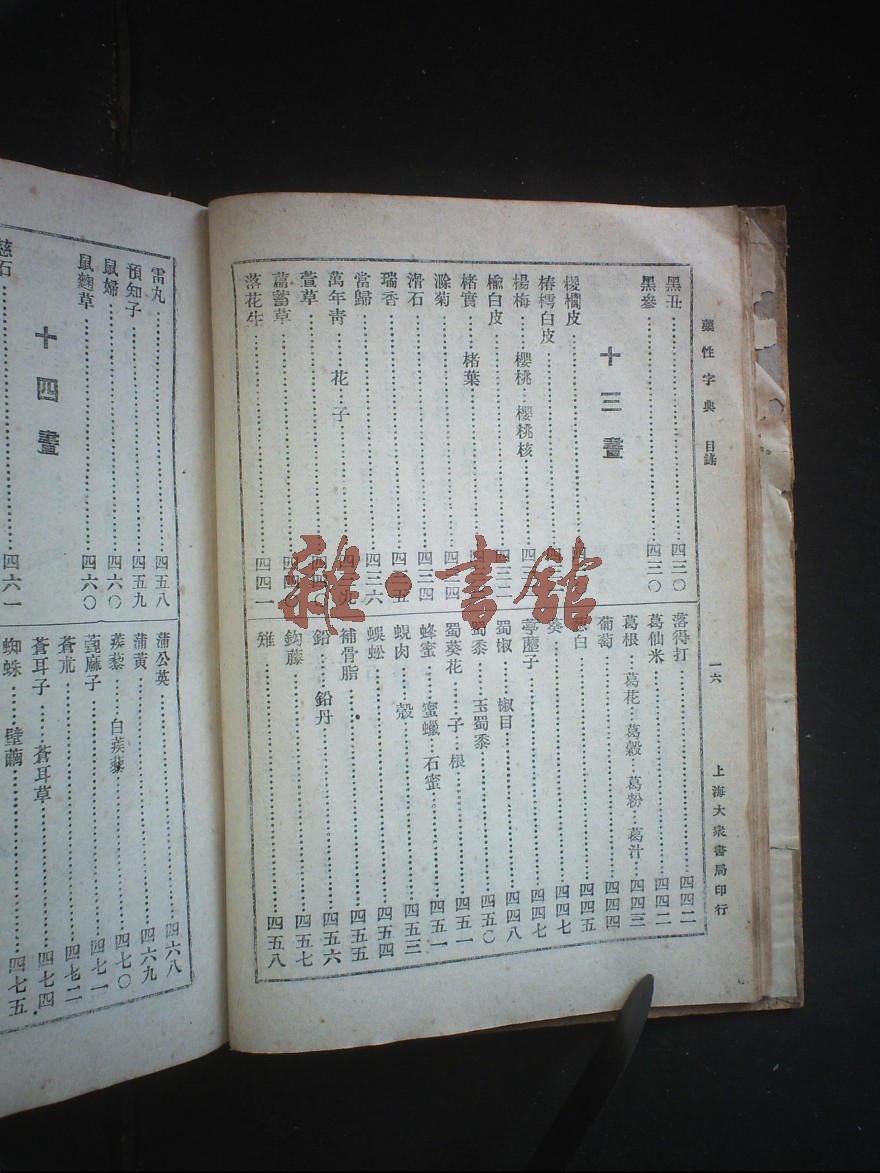 藥性字典 目錄
一六
上海大衆書局印行
黑丑 四三〇
黑參 四三〇
十三畫
椿樗白皮
楊梅 櫻桃 櫻桃核
楡白皮
楮實 楮葉
滁菊
滑石 四三四
瑞香
當歸 四三六
萬年靑 花 子
萱草
萹蓄草
落花生 四四一
落得打 四四二
葛仙米 四四二
葛根 葛花 葛穀 葛粉 葛汁 四四三
葡萄 四四四
葱白 四四五
葵 四四七
葶藶子 四四七
蜀椒 椒目 四四八
蜀黍 玉蜀黍 四五〇
蜀葵花 子 根 四五一
蜂蜜 蜜蠟 石蜜 四五一
蜆肉 殼 四五三
蜈蚣 四五四
補骨脂 四五五
鉛 鉛丹 四五六
鈎藤 四五七
雉 四五八
雷丸 四五八
預知子 四五九
鼠婦 四六〇
鼠麴草 四六〇
十四畫
慈石 四六一
蒲公英 四六八
蒲黃 四六九
蒺藜 白蒺藜 四七〇
蓖麻子 四七一
蒼朮 四七二
蒼耳子 蒼耳草 四七四
蜘蛛 壁繭 四七五
雜·書舘